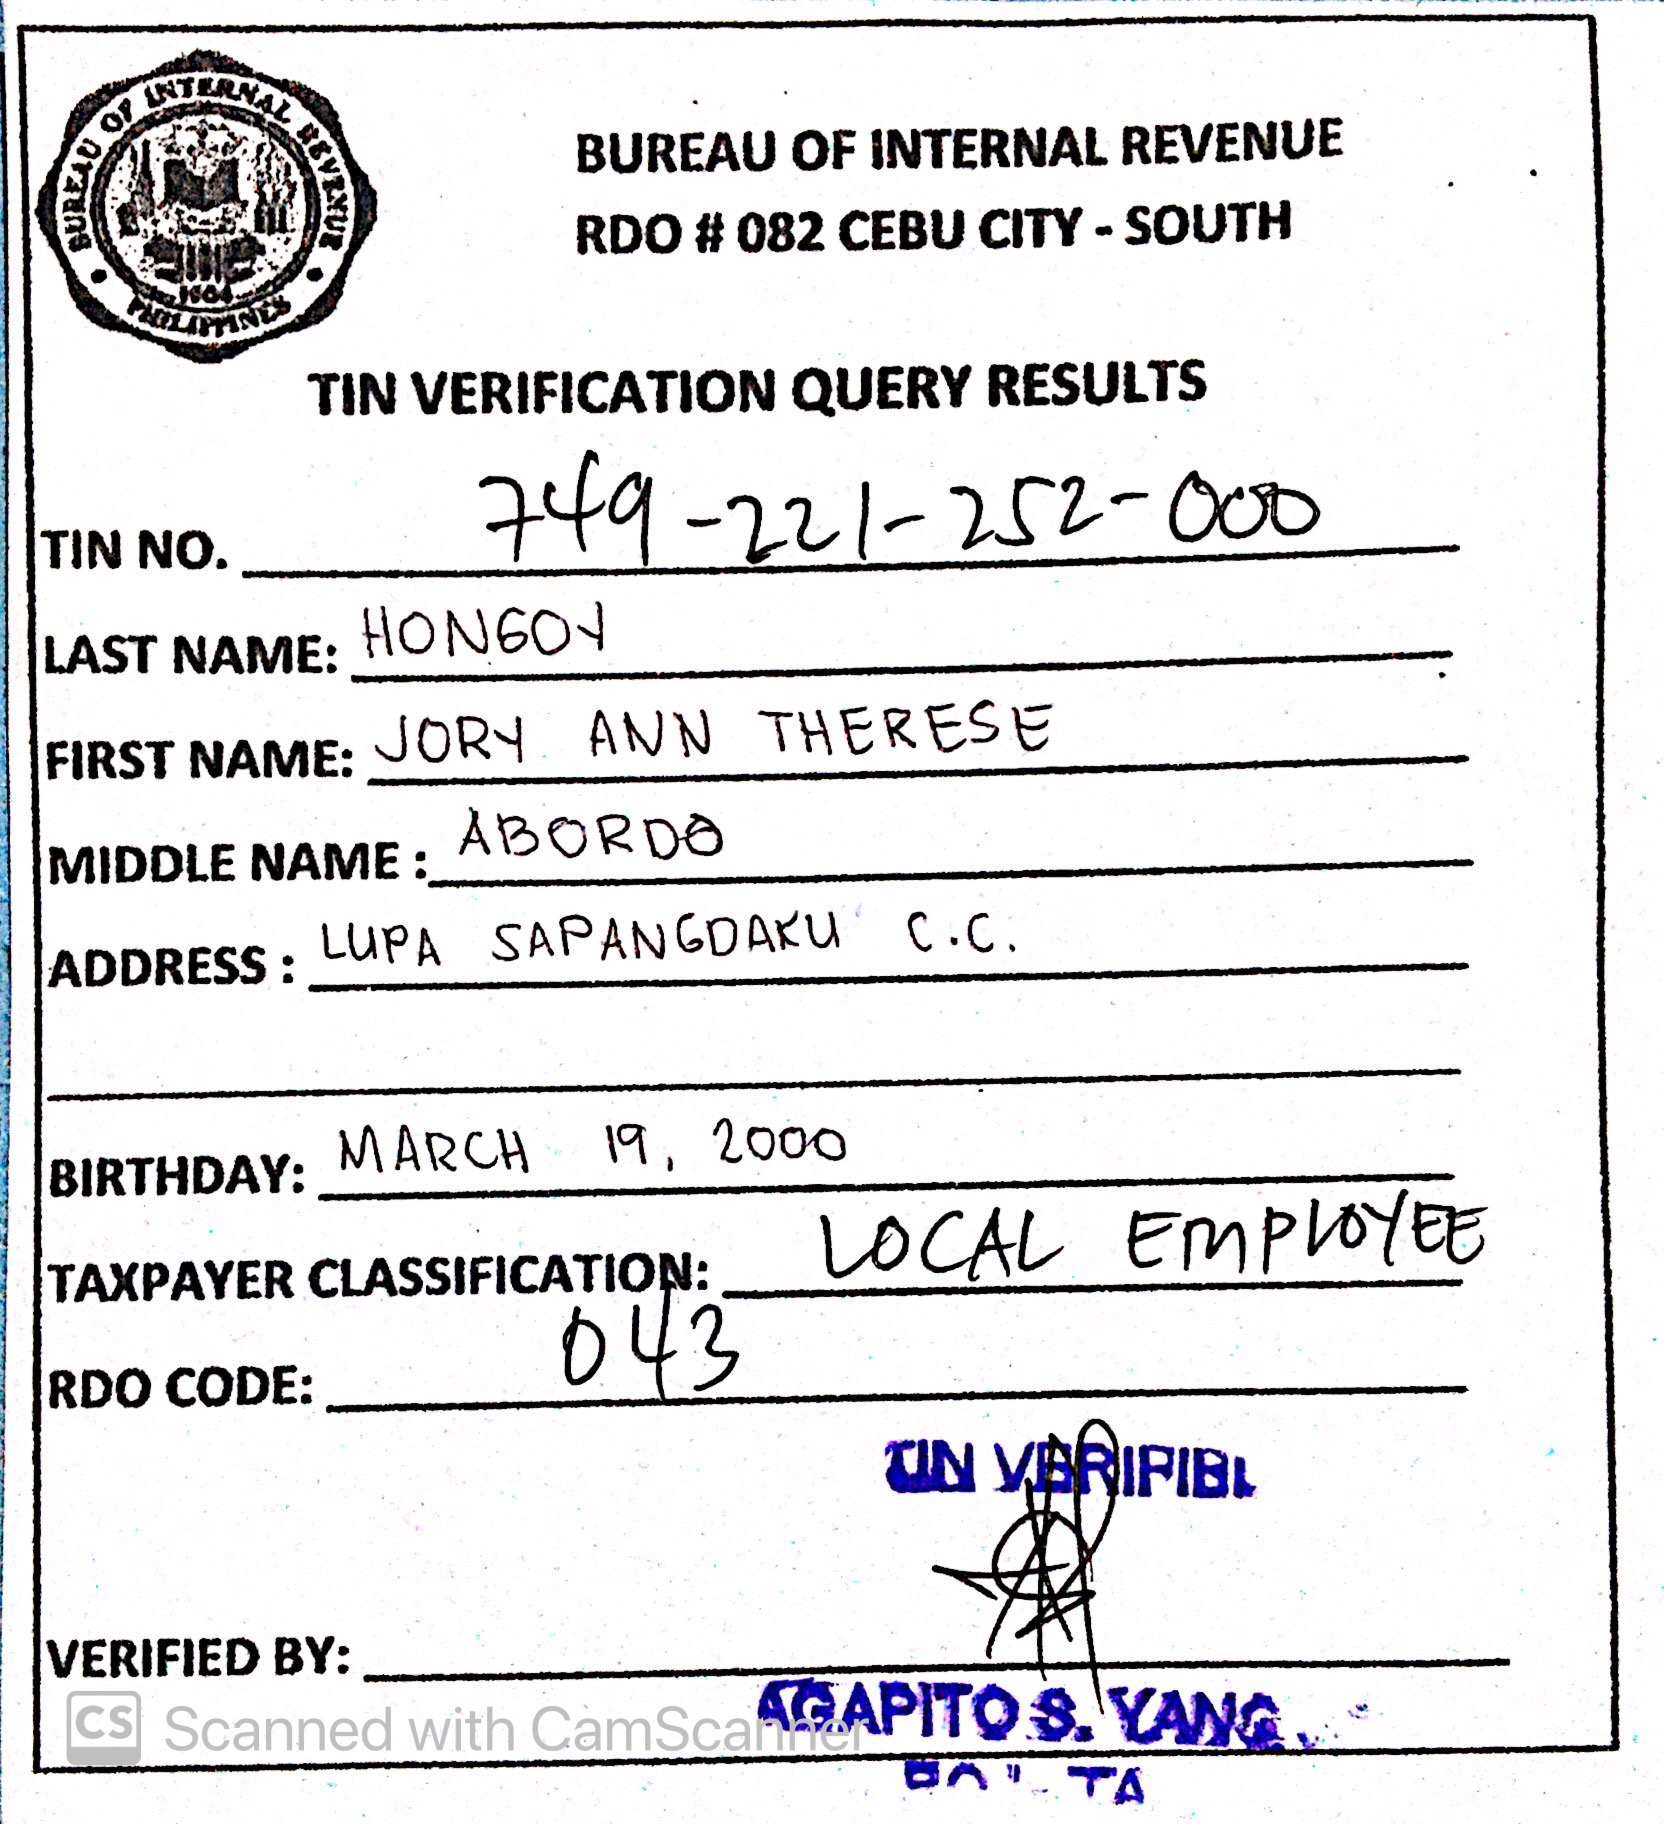 BUREAU OF INTERNAL REVENUE
PHILIPPINES
1904
BUREAU OF INTERNAL REVENUE
RDO # 082 CEBU CITY - SOUTH
TIN VERIFICATION QUERY RESULTS
TIN NO. 749-221-252-000
LAST NAME: HONGOY
FIRST NAME: JORY ANN THERESE
MIDDLE NAME : ABORDO
ADDRESS : LUPA SAPANGDAKU C.C.
BIRTHDAY: MARCH 19, 2000
TAXPAYER CLASSIFICATION: LOCAL EMPLOYEE
RDO CODE: 043
TIN
VERIFIED BY:
AGAPITO S. YANG
CS Scanned with CamScanner